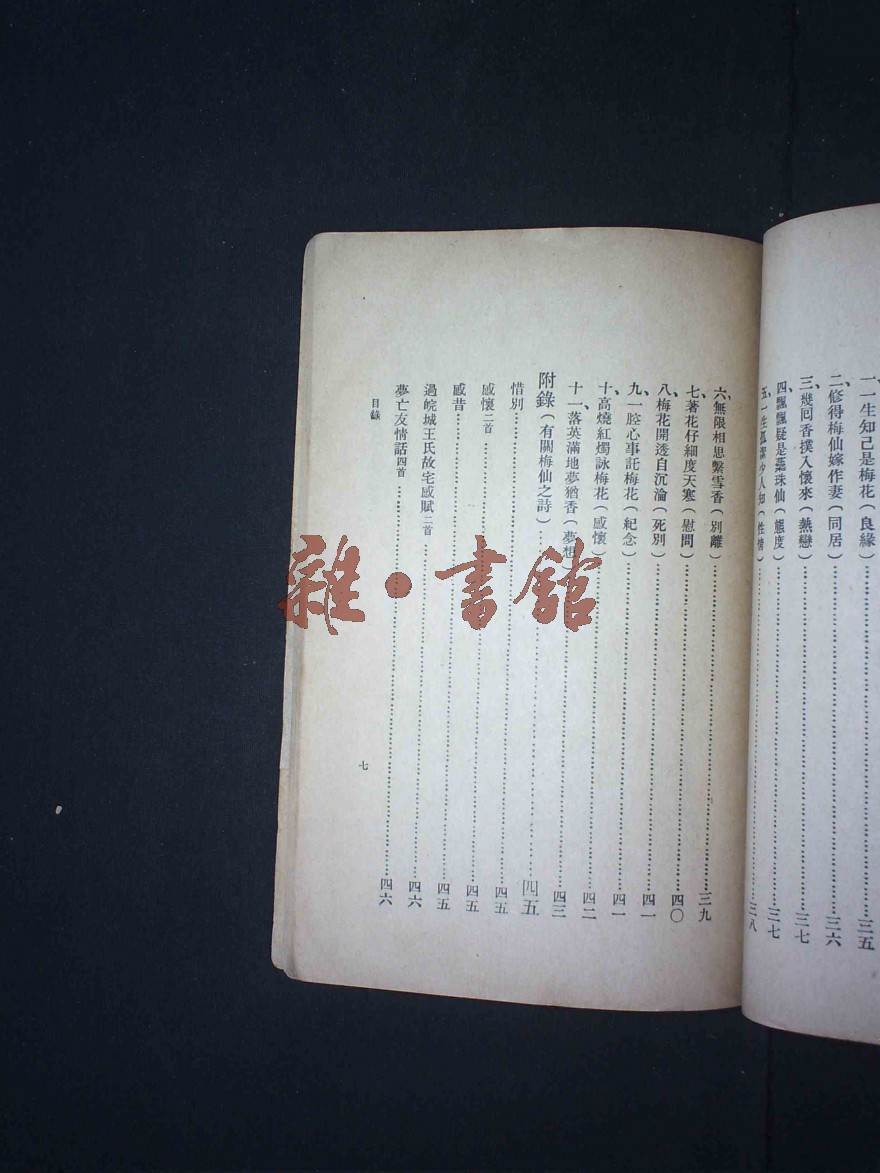 一、一生知己是梅花(良緣)……三五
二、修得梅仙嫁作妻(同居)……三六
三、幾回香撲入懷來(熱戀)……三七
四、飄飄疑是蘂珠仙(態度)……三七
五、一生孤潔少人知(性情)……三八
六、無限相思繫雪香(別離)……三九
七、著花仔細度天寒(慰問)……四〇
八、梅花開透自沉淪(死別)……四一
九、一腔心事託梅花(紀念)……四一
十、高燒紅燭詠梅花(感懷)……四二
十一、落英滿地夢猶香(夢想)……四三
附錄(有關梅仙之詩)……四五
惜別……四五
感懷二首……四五
感昔……四五
過皖城王氏故宅感賦二首……四六
夢亡友情話四首……四六
目錄
七
雜·書館